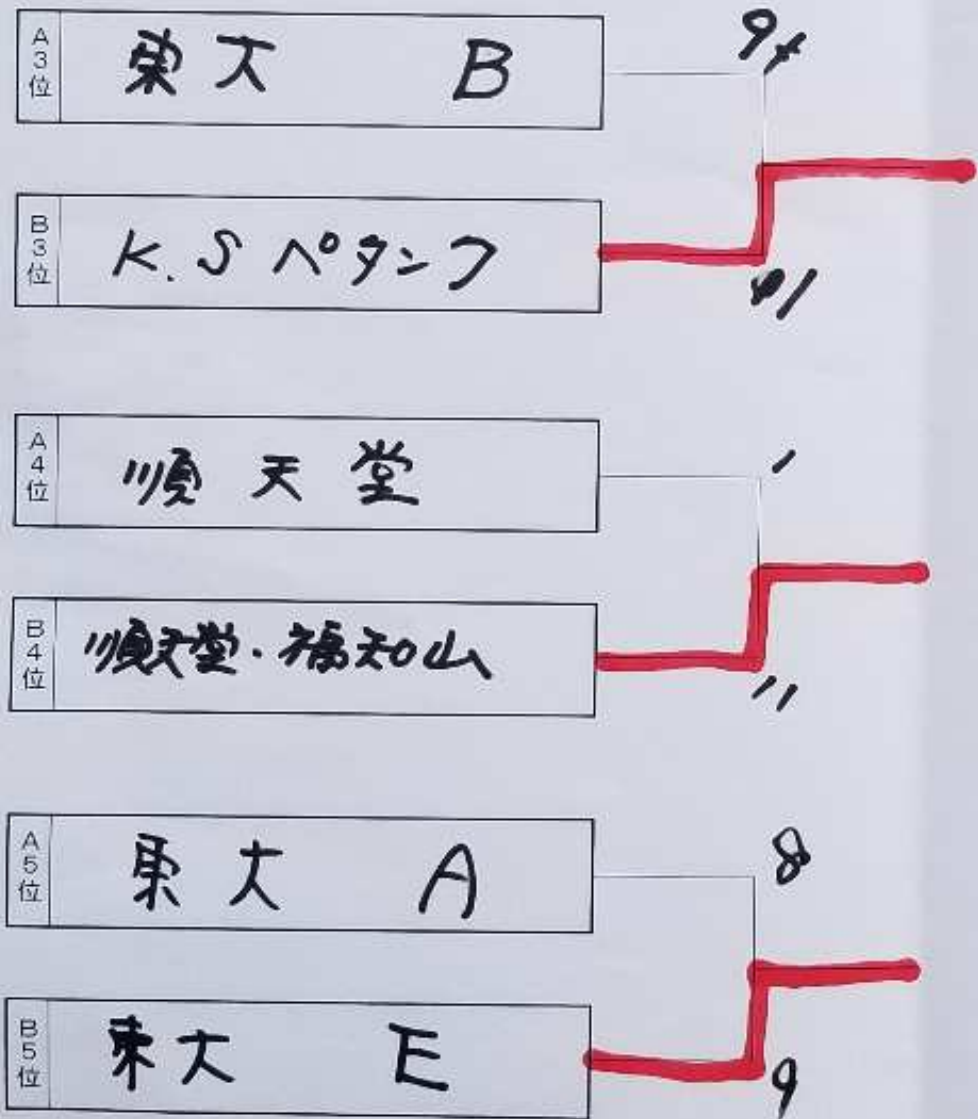 A3位 東大 B
9
B3位 K.S ペタンク
A4位 順天堂
1
B4位 順天堂・福知山
11
A5位 東大 A
8
B5位 東大 E
9